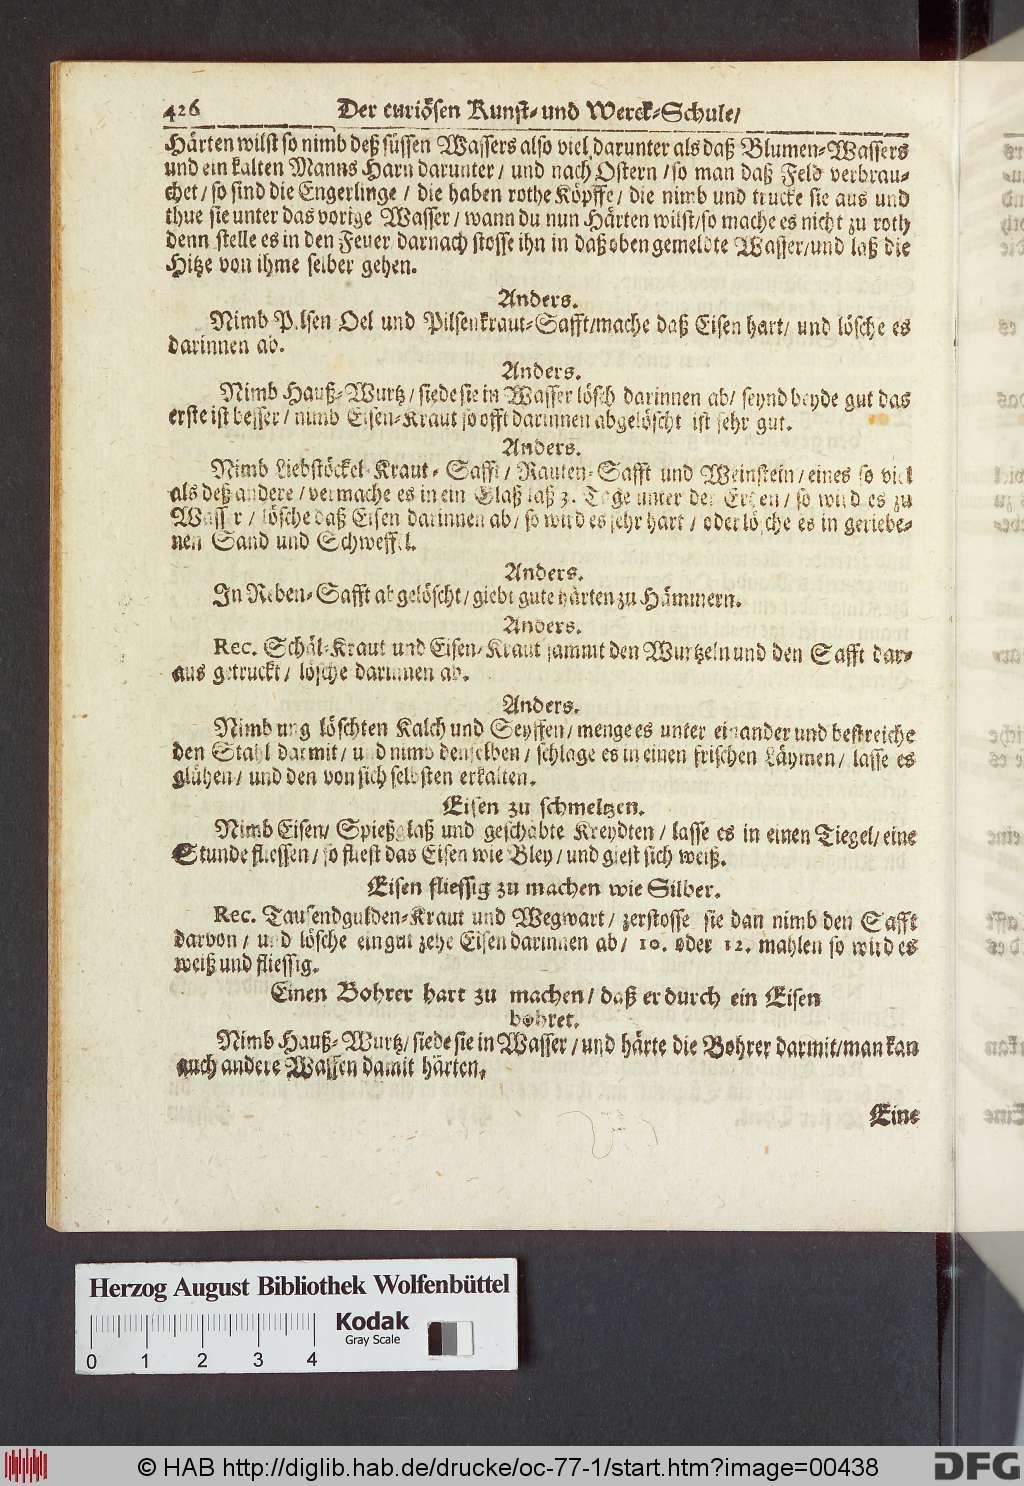 426 Der curiösen Kunst- und Werck-Schule/
Härten wilst so nimb deß süssen Wassers also viel darunter als daß Blumen-Wassers
und ein kalten Manns Harn darunter/ und nach Ostern/ so man daß Feld verbrau-
chet/ so sind die Engerlinge/ die haben rothe Köpffe/ die nimb und trucke sie aus und
thue sie unter das vorige Wasser/ wann du nun Härten wilst/ so mache es nicht zu roth
denn stelle es in den Feuer darnach stosse ihn in daß oben gemeldte Wasser/ und laß die
Hitze von ihme selber gehen.
Anders.
Nimb Pilsen Oel und Pilsenkraut-Safft/ mache daß Eisen hart/ und lösche es
darinnen ab.
Anders.
Nimb Hauß-Wurtz/ siede sie in Wasser lösch darinnen ab/ seynd beyde gut das
erste ist besser/ nimb Eisen-Kraut so offt darinnen abgelöscht ist sehr gut.
Anders.
Nimb Liebstöckel-Kraut-Safft/ Rauten-Safft und Weinstein/ eines so viel
als deß andere/ vermache es in ein Glaß laß 3. Tage unter der Erden/ so wird es zu
Wasser/ lösche daß Eisen darinnen ab/ so wird es sehr hart/ oder lösche es in geriebe-
nen Sand und Schweffel.
Anders.
In Reben-Safft abgelöscht/ giebt gute härten zu Hämmern.
Anders.
Rec. Schäl-Kraut und Eisen-Kraut sammt den Wurtzeln und den Safft dar-
aus getruckt/ lösche darinnen ab.
Anders.
Nimb ungelöschten Kalch und Seyffen/ menge es unter einander und bestreiche
den Stahl darmit/ und nimb denselben/ schlage es in einen frischen Läymen/ lasse es
glühen/ und den von sich selbsten erkalten.
Eisen zu schmeltzen.
Nimb Eisen/ Spießglaß und geschabte Kreydten/ lasse es in einen Tiegel/ eine
Stunde fliessen/ so fliest das Eisen wie Bley/ und giest sich weiß.
Eisen fliessig zu machen wie Silber.
Rec. Tausendgulden-Kraut und Wegwart/ zerstosse sie dan nimb den Safft
darvon/ und lösche ein gut zehe Eisen darinnen ab/ 10. oder 12. mahlen so wird es
weiß und fliessig.
Einen Bohrer hart zu machen/ daß er durch ein Eisen
bohret.
Nimb Hauß-Wurtz/ siede sie in Wasser/ und härte die Bohrer darmit/ man kan
auch andere Waffen damit härten.
Eine
Herzog August Bibliothek Wolfenbüttel
Kodak
Gray Scale
0 1 2 3 4
© HAB http://diglib.hab.de/drucke/oc-77-1/start.htm?image=00438
DFG